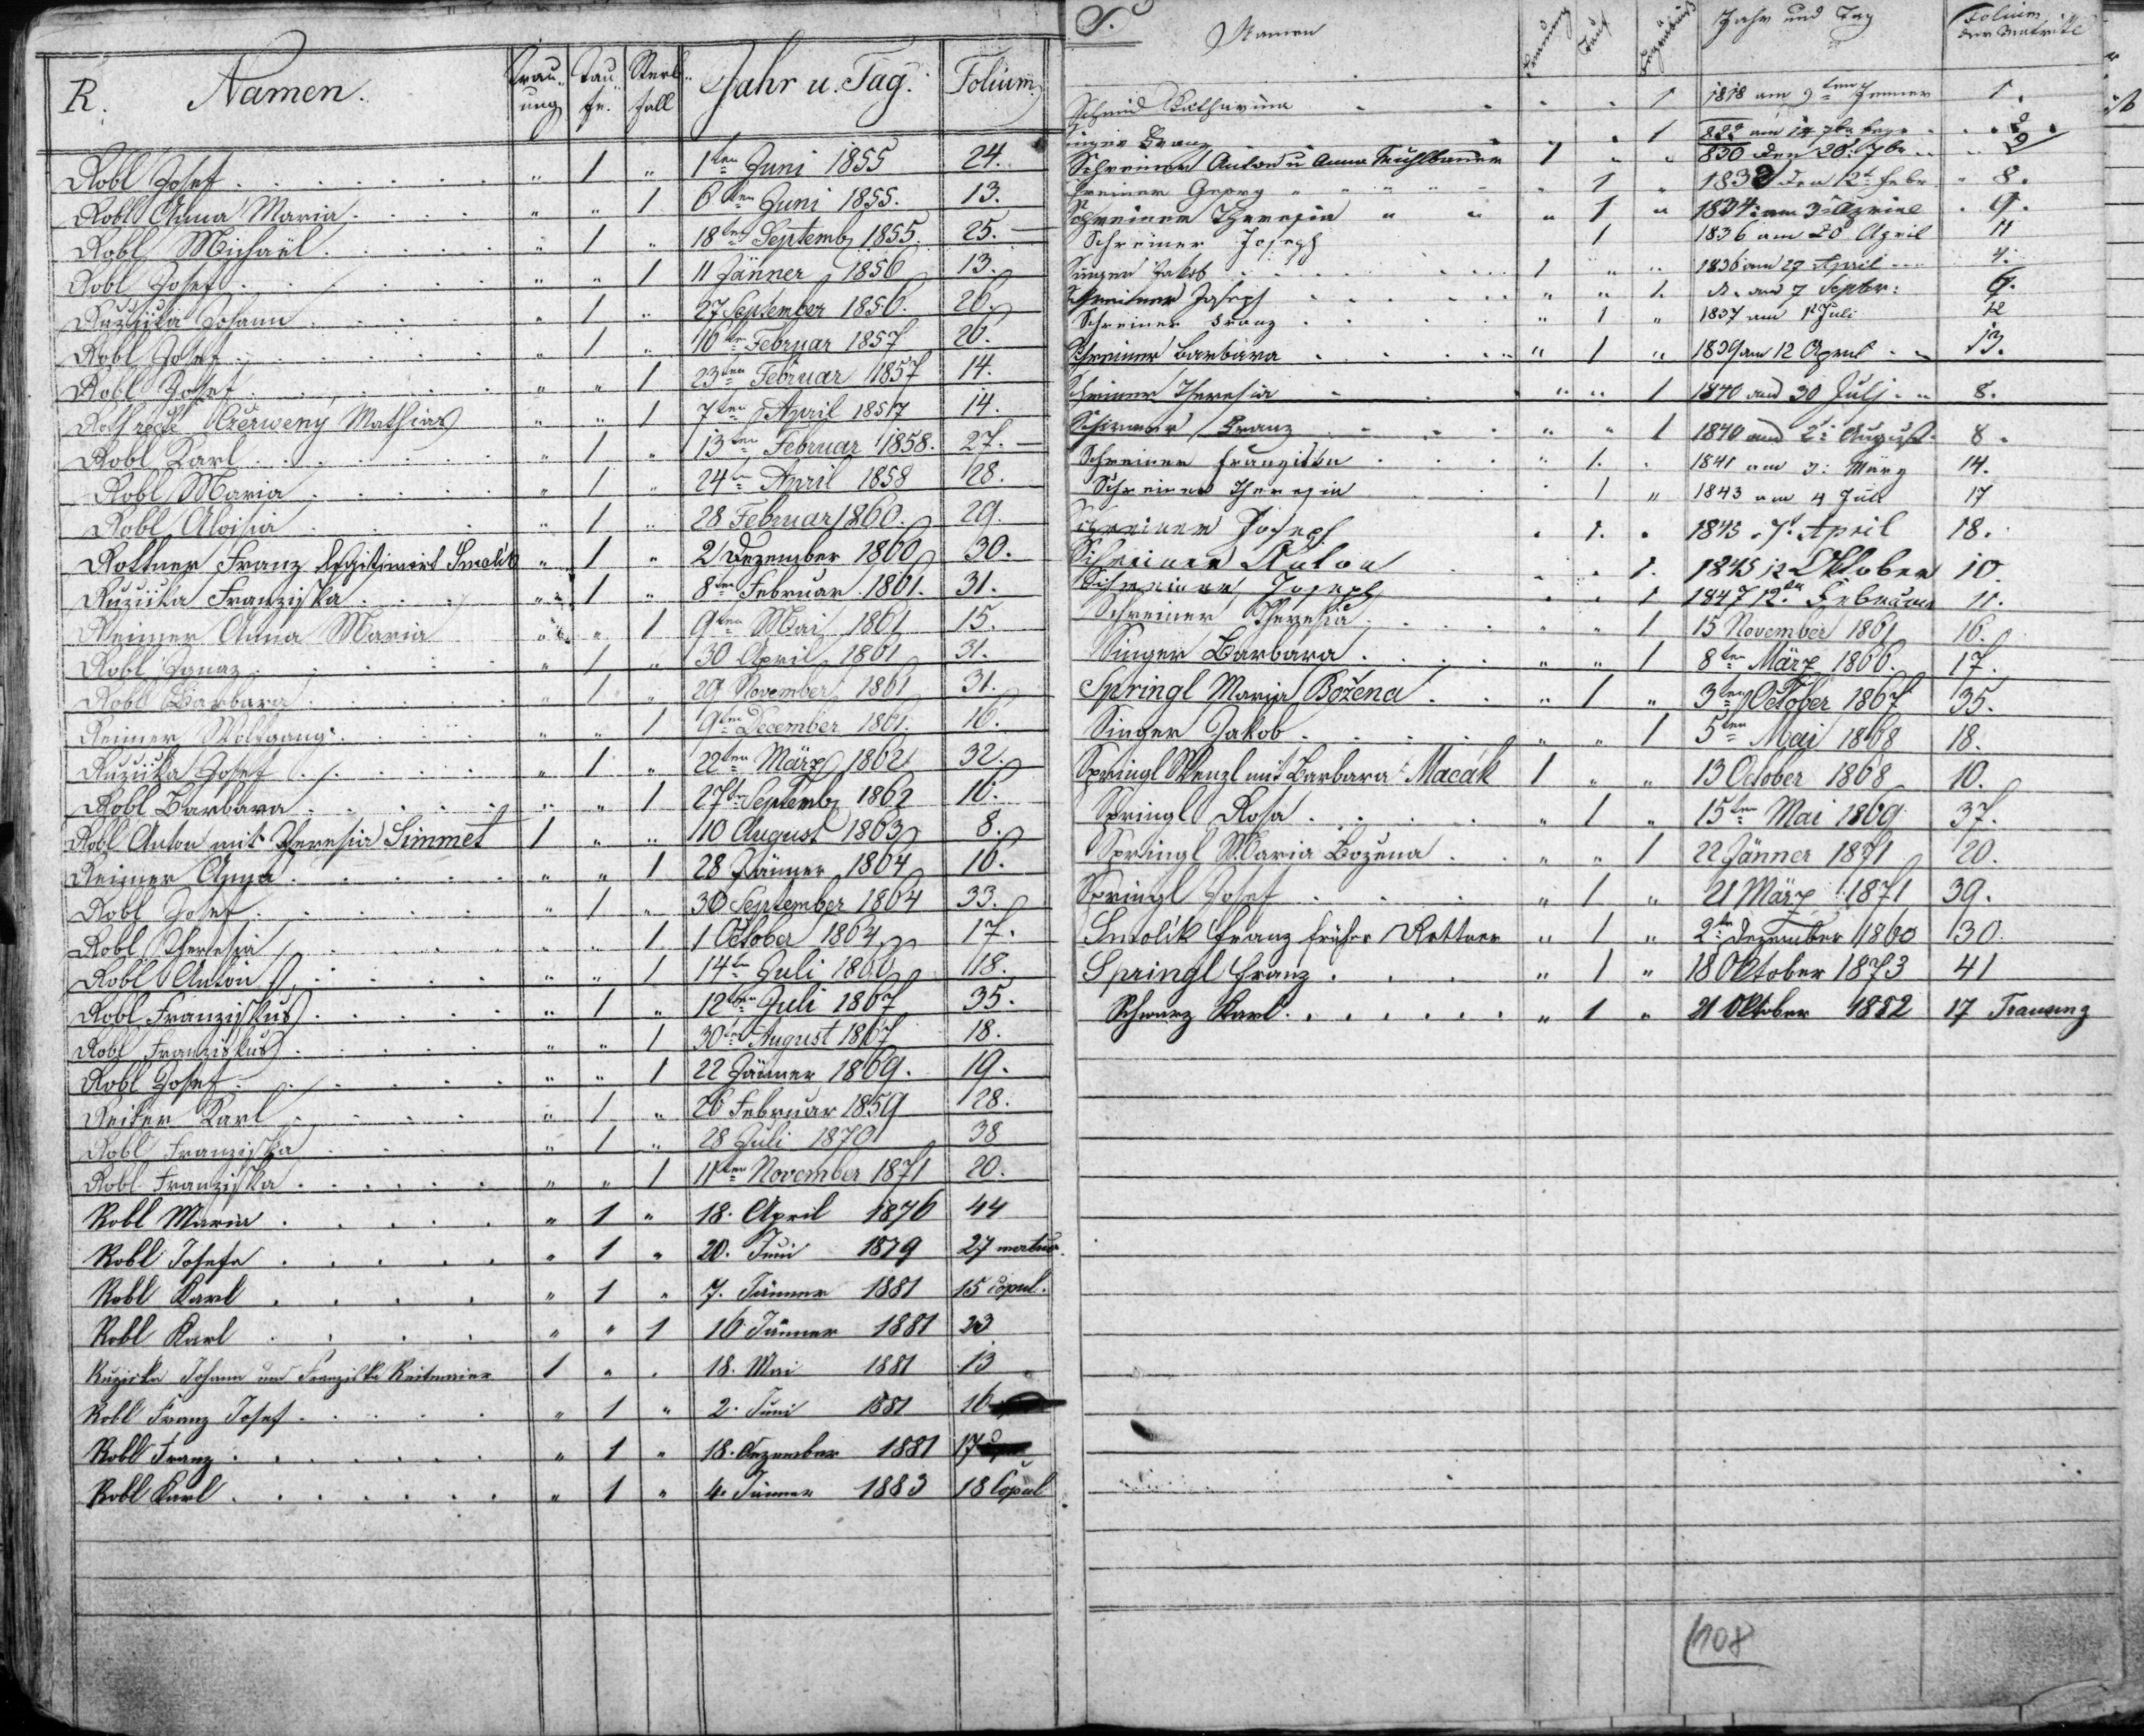 R. Namen. Trau-ung Tau-fe. Sterb-fall Jahr u. Tag. Folium.
Robl Josef . . . . . . . " 1 " 1ten Juni 1855 24.
Robl Anna Maria . . . . " " 1 6ten Juni 1855. 13.
Robl Michaël . . . . . " 1 " 18ten Septemb. 1855. 25.
Robl Josef . . . . . . " " 1 11 Jänner 1856 13.
Ružička Johann . . . . " 1 " 27 September 1856. 26.
Robl Josef . . . . . . " 1 " 16ten Februar 1857 26.
Robl Josef . . . . . . " " 1 23ten Februar 1857 14.
Roth recte Czerweny Mathias " " 1 7ten April 1857 14.
Robl Karl . . . . . . " 1 " 13ten Februar 1858. 27.
Robl Maria . . . . . " 1 " 24ten April 1858 28.
Robl Aloisia . . . . . " 1 " 28 Februar 1860. 29.
Rottner Franz legitimirt Smolik " 1 " 2 Dezember 1860 30.
Ružička Franziska . . . . " 1 " 8ten Februar 1861. 31.
Reimer Anna Maria " " 1 9ten Mai 1861 15.
Robl Ignaz . . . . . " 1 " 30 April 1861 31.
Robl Barbara . . . . . " 1 " 29 November 1861 31.
Reimer Wolfgang . . . . " " 1 9ten December 1861. 16.
Ružička Josef . . . . . " 1 " 22ten März 1862 32.
Robl Barbara . . . . . " " 1 27ten Septemb. 1862 16.
Robl Anton mit Theresia Simmet 1 " " 10 August 1863 8.
Reimer Anna . . . . . " " 1 28 Jänner 1864 16.
Robl Josef . . . . . . " 1 " 30 September 1864 33.
Robl Theresia . . . . . " " 1 1 October 1864 17.
Robl Anton . . . . . " " 1 14ten Juli 1866 18.
Robl Franziskus . . . . . " 1 " 12ten Juli 1867 35.
Robl Franziskus . . . . . " " 1 30ten August 1867 18.
Robl Josef . . . . . . " " 1 22 Jänner 1869. 19.
Reiter Karl . . . . . " 1 " 26 Februar 1859 28.
Robl Franziska . . . . . " 1 " 28 Juli 1870 38
Robl Franziska . . . . . " " 1 11ten November 1871 20.
Robl Maria . . . . . " 1 " 18. April 1876 44
Robl Josefa . . . . . " 1 " 20. Juni 1879 27
Robl Karl . . . . . " 1 " 7. Jänner 1881 15 Copul.
Robl Karl . . . . . " " 1 16 Jänner 1881 23
Ružička Johann und Franziska Reitmaier 1 " . 18. Mai 1881 13
Robl Franz Josef . . . . . " 1 " 2. Juni 1881 16
Robl Franz . . . . . . " 1 " 18. Dezember 1881 17
Robl Karl . . . . . . " 1 " 4. Jänner 1883 18 Copul
S. Namen Trauung Tauf Jahr und Tag Folium der Matrike
Schmid Katharina . . . . 1 1818 am 9ten Jenner 1.
Singer Franz 1
Schreiner Anton u Anna Mühlbauer 1 " " 830 den 28. 7br 9
Schreiner Georg " 1 " 183 den 12t febr. 8.
Schreiner Theresia " 1 " 1834 am 3 9.
Schreiner Joseph 1 1836 am 20 April 11
Singer Jakob . . . . 1 " " 1836 am 27 April 4.
Schreiner Joseph . . . . " " 1. am 7 Septbr: 6.
Schreiner Franz . . . . " 1 " 1837 am 1t Juli 12
Schreiner Barbara . . . . " 1 " 1839 am 12 April 13.
Schreiner Theresia . . " " 1 1840 am 30 Julj 8.
Schirmer Franz . . . " " 1 1840 am 2. August. 8.
Schreiner Franziska . . . " 1. . 1841 am 3: März 14.
Schreiner Theresia . . 1 " 1843 am 4 Juli 17
Schreiner Joseph . 1. . 1845 . 7. April 18.
Schreiner Anton . . 1. 1845 12 Oktober 10.
Schreiner Joseph . . 1 1847 12. Februar 11.
Schreiner Theresia . . . . " " 1 15 November 1861 16.
Singer Barbara . . . . " " 1 8ten März 1866. 17.
Springl Maria Božena . . " 1 " 3ten October 1867 35.
Singer Jakob . . . . " " 1 5ten Mai 1868 18.
Springl Wenzl mit Barbara Macák 1 " " 13 October 1868 10.
Springl Rosa . . . . . " 1 " 15ten Mai 1869 37.
Springl Maria Božena . . " " 1 22 Jänner 1871 20.
Springl Josef . . . . " 1 " 21 März 1871 39.
Smolik Franz früher Rottner " 1 " 2ten Dezember 1860 30.
Springl Franz . . . . " 1 " 18 Oktober 1873 41
Schwarz Karl . . . . . . " 1 " 21 Oktober 1882 17 Trauung
108